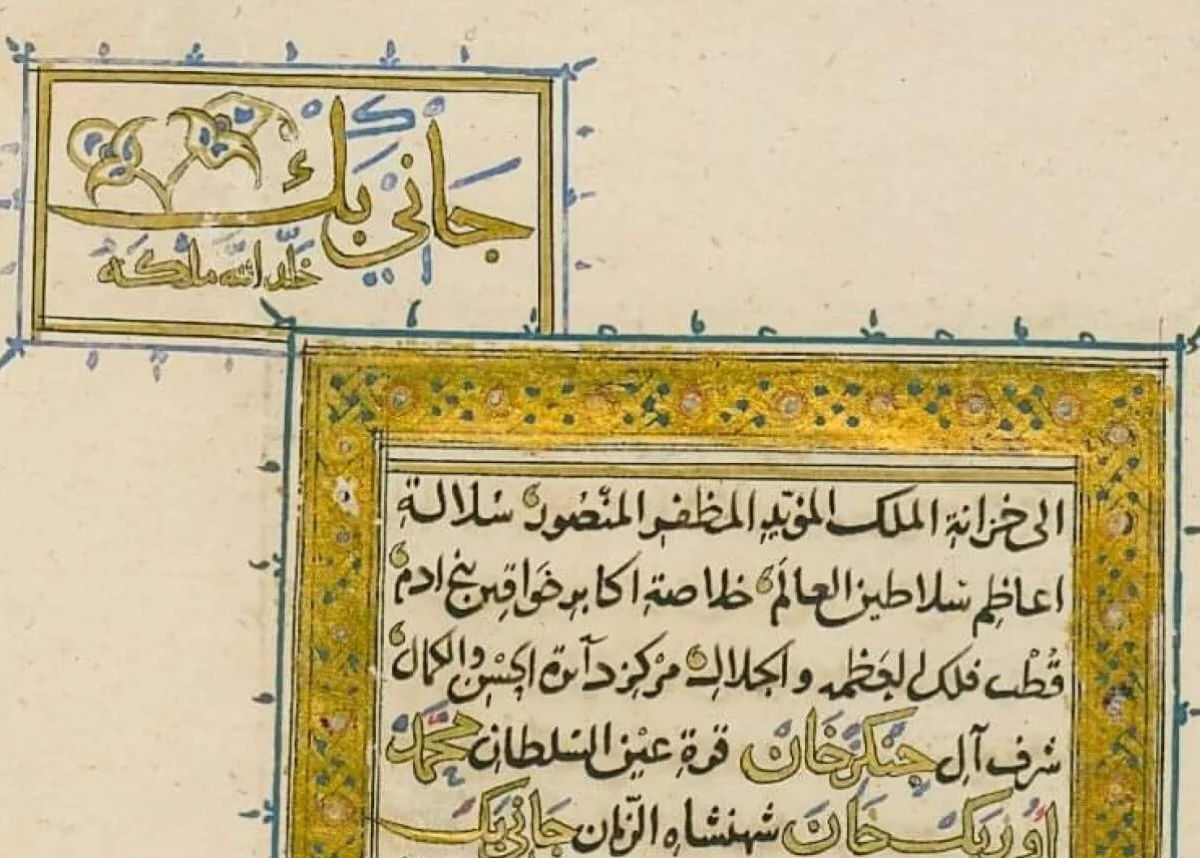 جاني بك
خلد الله ملكه
الى خزانة الملك المؤيد المظفر المنصور سلالة
اعاظم سلاطين العالم خلاصة اكابر خواقين بني ادم
قطب فلك العظمه والجلال مركز دآئرة الحسن والكمال
شرف آل جنكزخان قرة عين السلطان محمد
اوزبك خان شهنشاه الزمان جاني بك